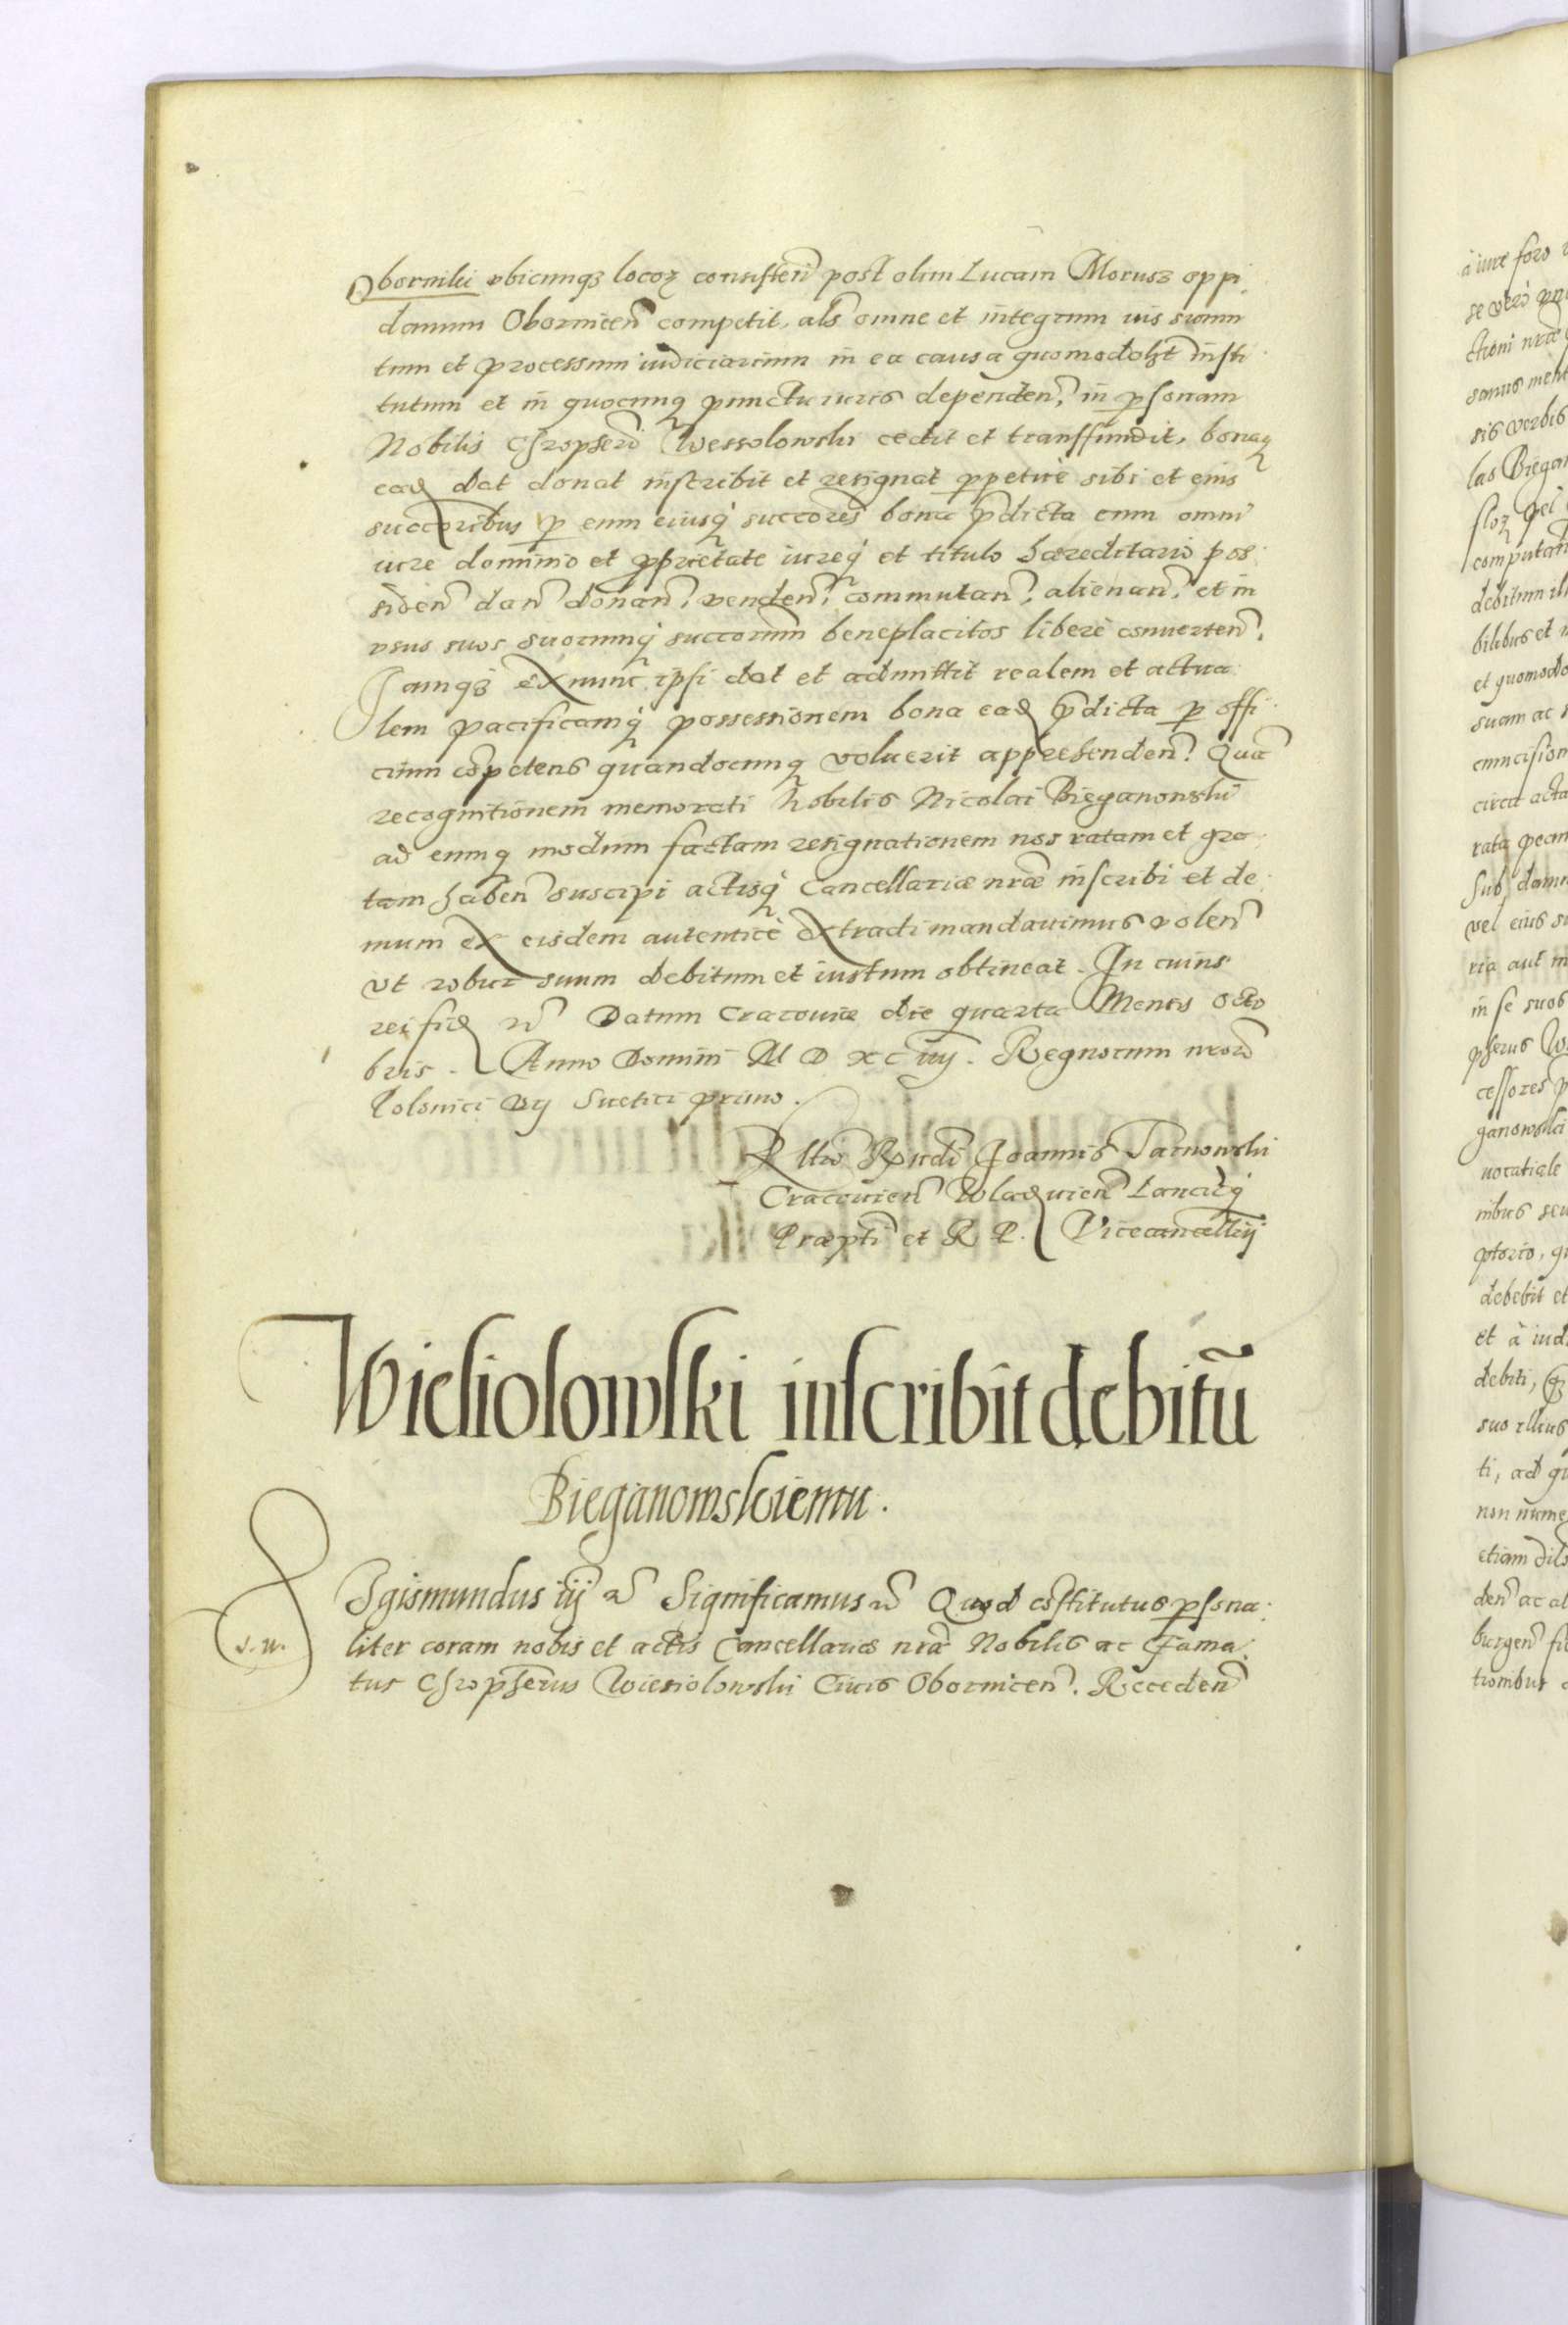 Oborniki vbicunq₃ locoꝝ consisteñ post olim Lucam Morusz oppi
danum Oborniceñ competit, als omne et integrum ius suum
tum et processum iudiciarium in ea causa quomodolꝫt insti
tutum et in quocunq₃ punctu iuris dependeñ, in ꝑsonam
Nobilis Chropheri Wessolowski cedit et transfundit, bonaq₃
eað dat donat inscribit et resignat ꝑpetuè sibi et eius
succoribus ꝑ eum eiusq₃ succores bona p̃dicta cum omni
iure dominio et ꝓprietate iureq₃ et titulo hæreditario pos
sideñ dañ donañ, vendeñ, commutañ, alienañ, et in
vsus suos suorumq₃ succorum beneplacitos liberè conuerteñ.
Iamq₃ ex nunc ipsi dat et admittit realem et actua
lem pacificamq₃ possessionem bona eað p̃dicta ꝑ offi
cium cõpetens quandocunq₃ voluerit apprehendeñ. Quã
recognitionem memorati Nobilis Nicolai Bieganowski
ad eumq₃ modum factam resignationem nos ratam et gra
tam habeñ suscipi actisq₃ Cancellariæ nr̃æ inscribi et de
mum ex eisdem autenticè extradi mandauimus voleñ
vt robur suum debitum et iustum obtineat. In cuius
rei fið &c̃ Datum Cracouiæ die quarta Mensis Octo
bris. Anno Domini M D XC iiij. Regnorum nr̃orũ
Polonici vij Suetici primo.
R̃ltio R̃ndi Ioannis Tarnowski
Cracouieñ Wladᵢuieñ Lanciẽq₃
Præpti et R P. Vicecancellẽij
Wiesiolowski inscribit debitũ
Bieganowskiemu.
SIgismundus iij &c̃ Significamus &c̃ Quod cõstitutus ꝑsona
liter coram nobis et actis Cancellariæ nr̃æ Nobilis ac Fama
s. n.
tus Chropherus Wiesiolowski Ciuis Oborniceñ. Recedeñ
à iure foro
se verò
ctioni nr̃æ
sanus ment
sis verbis
las Biegan
computañ
debitum
bilibus et
et quomodo
suam ac
circa acta
rata pecun
Sub damn
vel eius su
ria aut in
in se suos
pherus W
cessores
ganowski
ptorio, q
debebit et
et à iud
debiti,
suo illius
ti, ad qu
non nume
etiam
deñ ac al
burgeñ